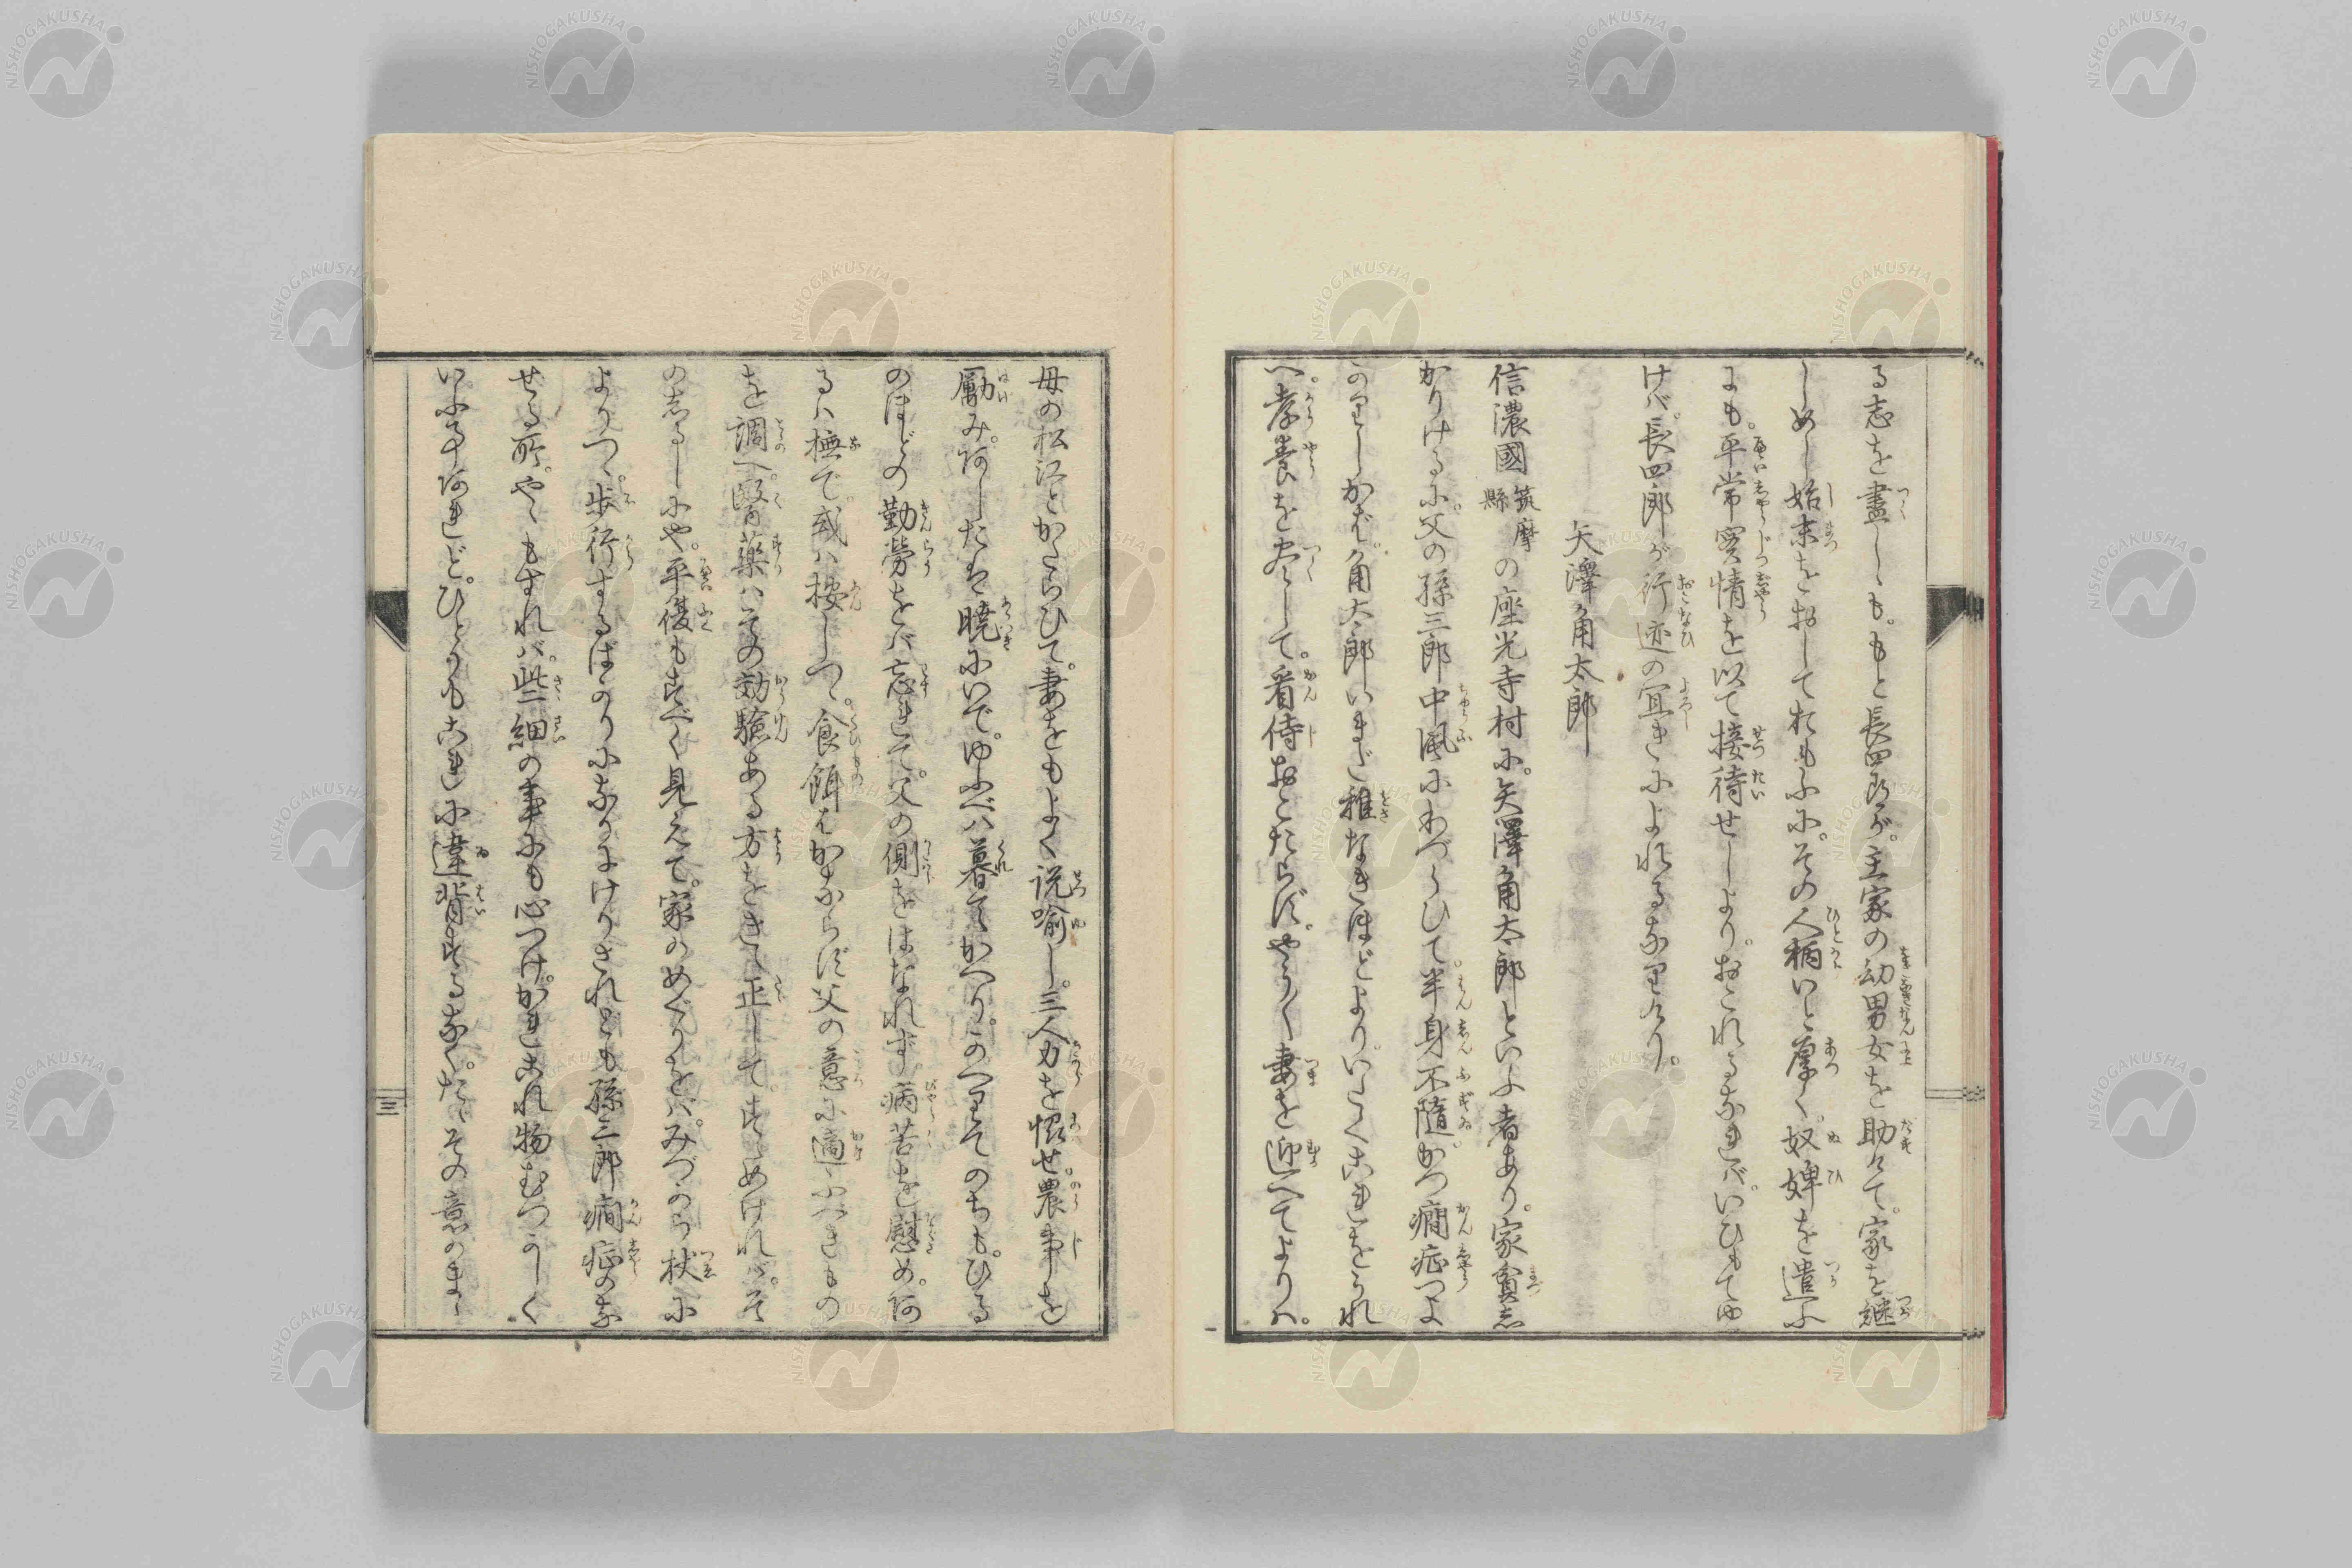 る志を盡しゝも。もと長四郎が。主家の幼男女を助けて。家を継
しめし始末をおしておもふに。その人柄いと厚く。奴婢を遣ふ
にも。平常実情を以て接待せしより。おこれるなれバ。いひもてゆ
けバ。長四郎が行迹の宜きによれるなりけり。
矢澤角太郎
信濃國筑摩縣の座光寺村に。矢澤角太郎といふ者あり。家貧し
かりけるに。父の孫三郎中風にわづらひて。半身不隨。かつ癇症つよ
のりしかば。角太郎いまだ稚なきほどより。いたくこれをうれ
へ。孝養を尽して。看侍おこたらず。やうく妻を迎へてよりハ。
母の松江とかたらひて。妻をもよく説喩し。三人力を恊せ。農事を
勵み。あしたに暁にいで。ゆふべハ暮てかへり。のへりそののちも。ひる
のほどの勤勞をバ忘れて。父の側をはなれず。病苦を慰め。ある
るハ撫で。或ハ按しつゝ。食餌もかならず父の意に適ふべきもの
を調へ。醫藥ハその効験ある方をきゝ正して。すゝめけれバ。そ
のしるしにや。平復もすべく見えて。家のめぐりをバ。みづから杖に
よりつゝ。歩行するばかりになりにけり。されども孫三郎癇症のな
せる所。やゝもすれバ。些細の事にも心つけ。かれこれ物むつかしく
いふ事あれど。ひとりもこれに違背するなく。たゞその意のまゝ
三
NISHOGAKUSHA